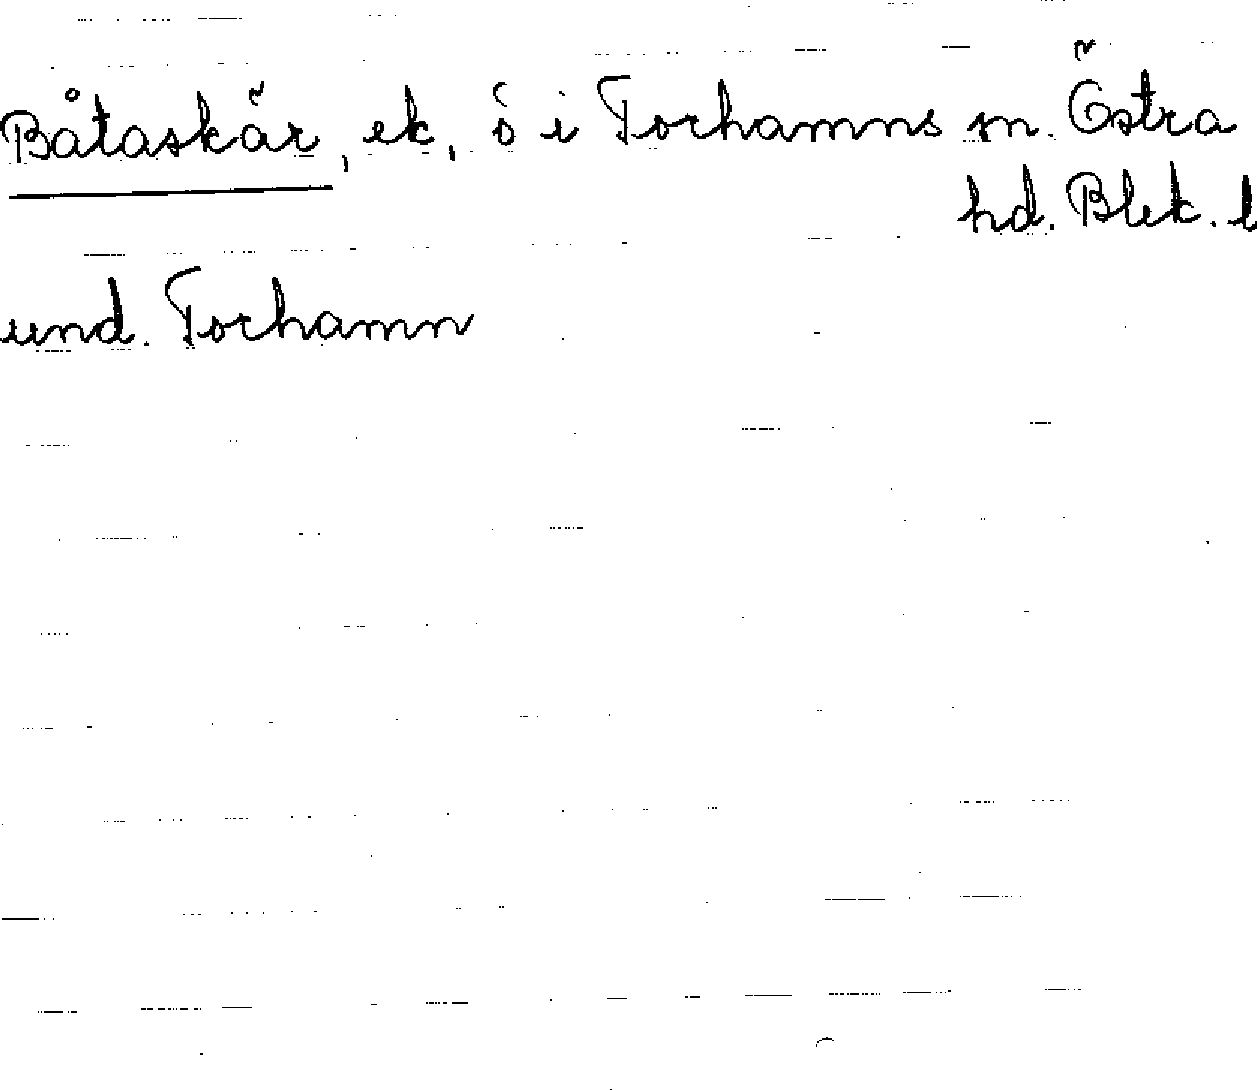 Båtaskär, ek, ö i Torhamns sn. Östra
hd. Blek. l
und. Torhamn